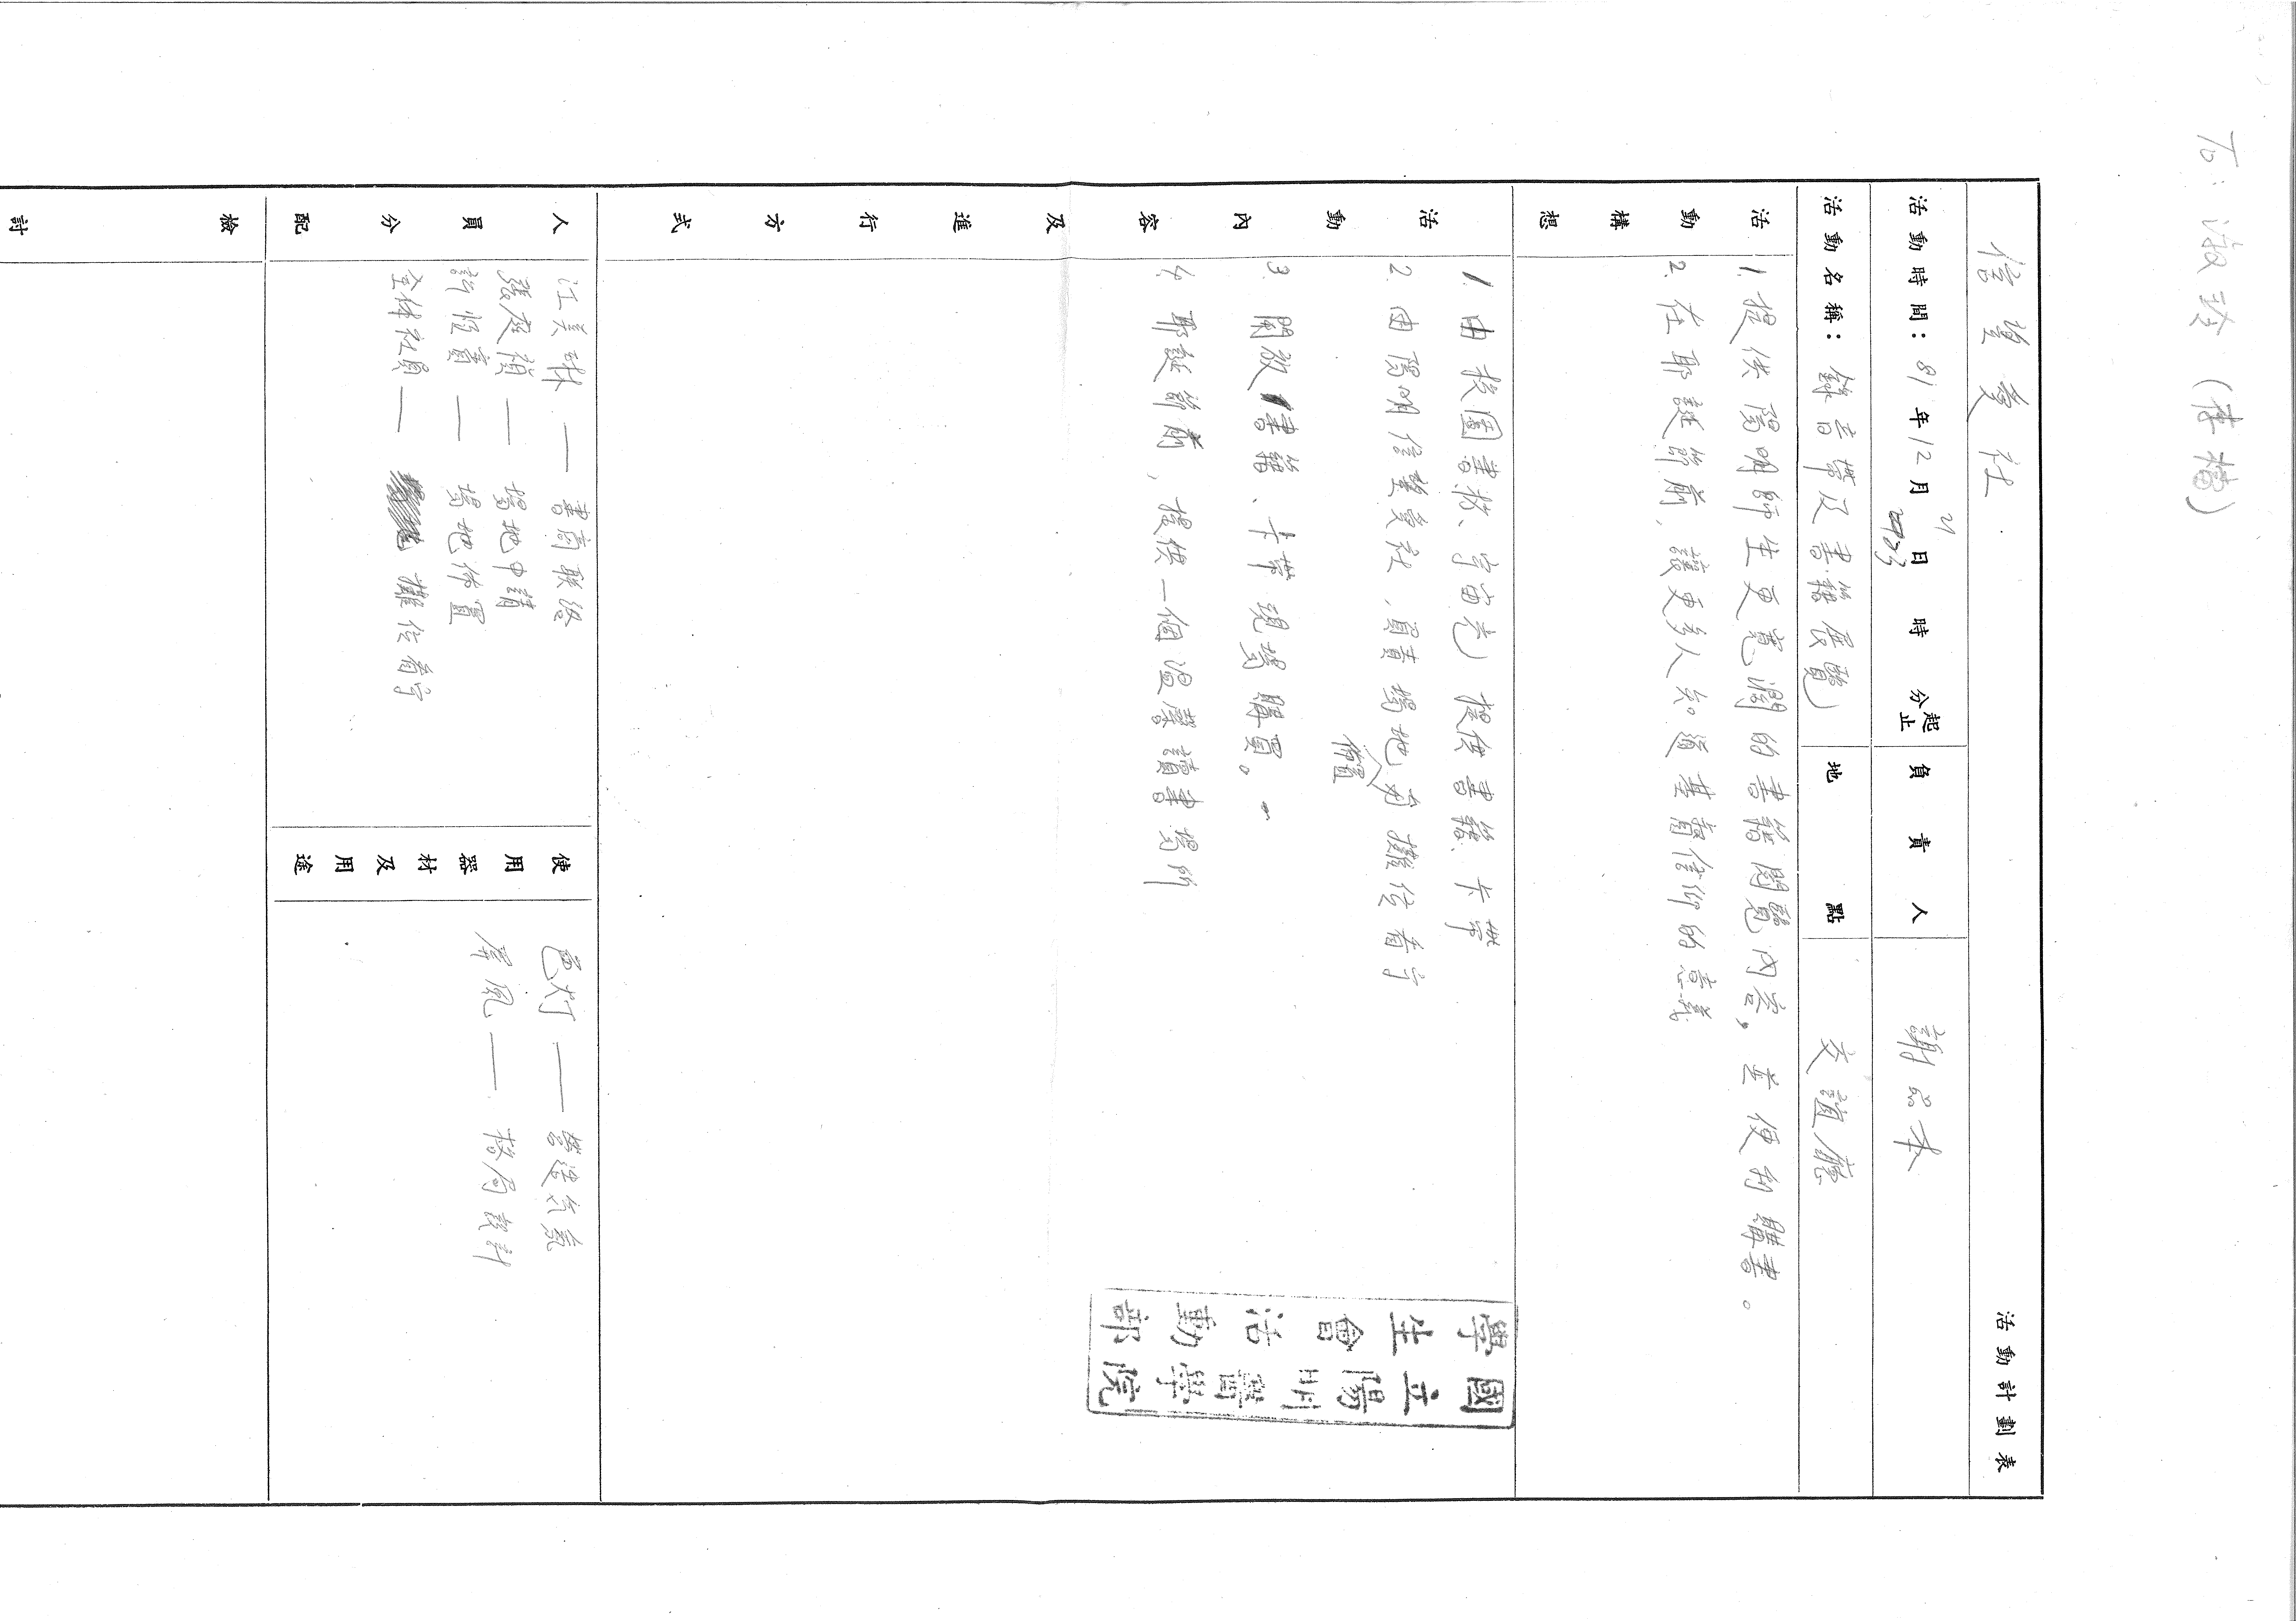 To: 淑玲 (建檔)
信望愛社
活動計劃表
活動時間: 81年12月21日 時 分起止
負責人 謝品本
活動名稱: 錄音帶及書籍展覽
地點 交誼廳
活動構想
1. 提供陽明師生更寬濶的書籍閱覽內容，並便利購書。
2. 在耶誕節前，讓更多人知道基督信仰的意義
活動內容及進行方式
1. 由校園書攤、宇宙光) 提供書籍、卡帶
2. 由陽明信望愛社，負責場地佈置與攤位看守
3. 開放書籍、卡帶現場購買。
4. 耶誕節前，提供一個溫馨讀書場所
國立陽明醫學院
學生會活動部
人員分配
江美琳 — 書商聯絡
張庭禎 — 場地申請
許恆賓 — 場地佈置
全体社員 — 攤位看守
使用器材及用途
色灯 — 營造氣氛
屏風 — 格局設計
檢討